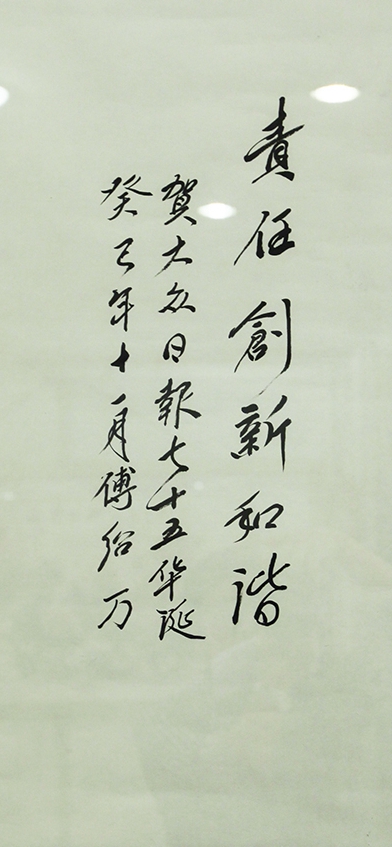 責任創新和谐
賀大众日報七十五华诞
癸巳年十一月傅绍万